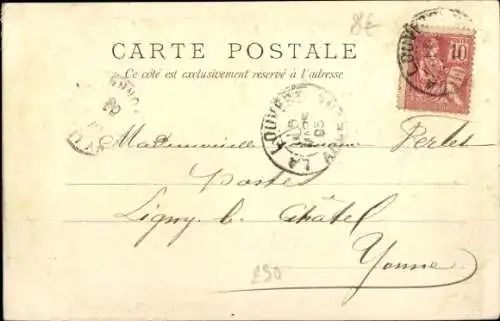 8€
CARTE POSTALE
Ce côté est exclusivement réservé à l'adresse
10
LA LOUVE
Mademoiselle Perles
Postes
Ligny-le-Châtel
Yonne
230